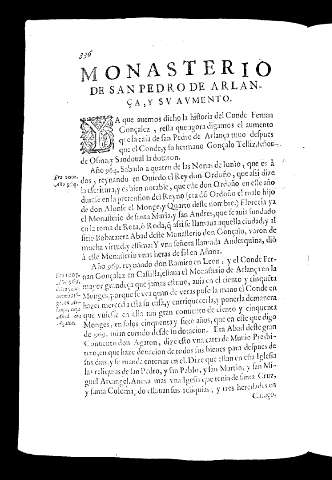 336
MONASTERIO
DE SAN PEDRO DE ARLAN-
ÇA, Y SV AVMENTO.
YA que auemos dicho la historia del Conde Fernan
Gonçalez, resta que agora digamos el aumento
que la casa de san Pedro de Arlança tuuo despues
que el Conde, y su hermano Gonçalo Telliz, señor
de Osma, y Sandoual la dotaron.
Año 964. Sabado a quatro de las Nonas de Iunio, que es à
dos, reynando en Ouiedo el Rey don Ordoño, que assi dize
la escritura, y es bien notable, que este don Ordoño en este año
en la pretension del Reyno
de don Alonso el Monge, y Quarto deste nombre.) Florecia ya
el Monasterio de santa Maria, y san Andres, que se auia fundado
en la torre de ò Roda, q̃ assi se llamaua aquella ciudad, y al
Abad deste Monasterio don Gonçalo, varon de
mucha virtud, y Y vna señora llamada Anderquina, diò
à este Monasterio vnas heras de sal en Añana.
Año 969. reynando don Ramiro en Leon, y el Conde Fer-
nan Gonçalez en Castilla, estaua el Monasterio de Arlança en la
mayor grandeza que jamas estuuo, auia en el ciento y cinquẽta
Monges, porque se vea quan de veras puso la mano el Conde en
hazer merced à esta su casa, y enriquecerla, y ponerla de manera
que vuiesse en ella tan gran conuento de ciento y cinquenta
Monges, en solos cinquenta y siete años, que en este que digo
de 969. auian corrido desde su dotacion. Era Abad deste gran
Conuento don Agaton, dize esto vna carta de Munio Presbi-
tero, en que haze donacion de todos sus bienes para despues de
sus dias, y se manda enterrar en el. Dize que estan en esta Iglesia
las reliquias de san Pedro, y san Pablo, y san Martin, y san Mi-
guel Arcangel. Anexa mas vna Iglesia que tenia de santa Cruz,
y santa Coloma, do estauan sus reliquias, y tres heredades en